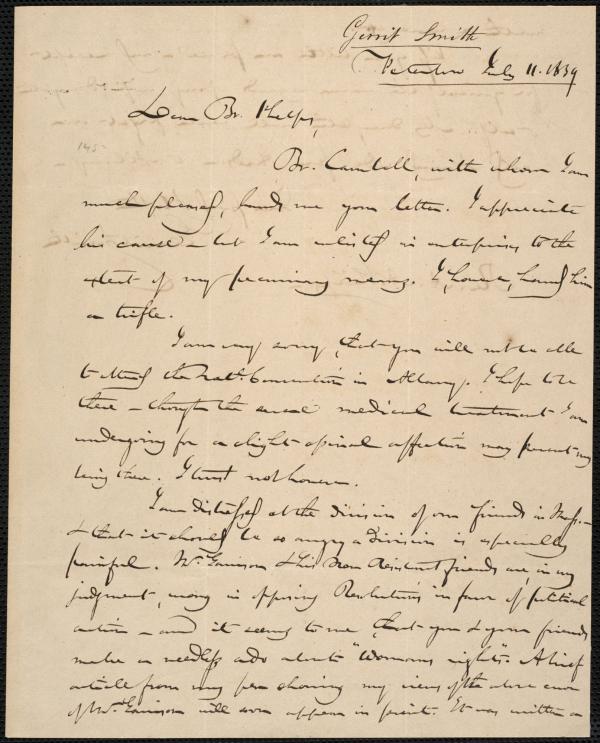 Gerrit Smith
Peterboro July 11. 1839
Dear Br. Phelps,
145
Br. Cambell, with whom I am
much pleased, hands me your letter. I appreciate
his cause - but I am enlisted in enterprises to the
extent of my pecuniary means. I, however, hand him
a trifle.
I am very sorry, that you will not be able
to attend the Natl. Convention in Albany. I hope to be
there - though the medical treatment I am
undergoing for a slight spinal affection may prevent my
being there. I trust not however.
I am distressed at the division of our friends in Mass. -
& that it should be so angry a division is especially
painful. Mr. Garrison & his Non Resistant friends are, in my
judgment, wrong in opposing Resolutions in favor of political
action - and it seems to me, that you & your friends
make a needless ado about "Womans rights". A brief
article from my pen showing my views of the above error
of Mr. Garrison will soon appear in print. It was written a